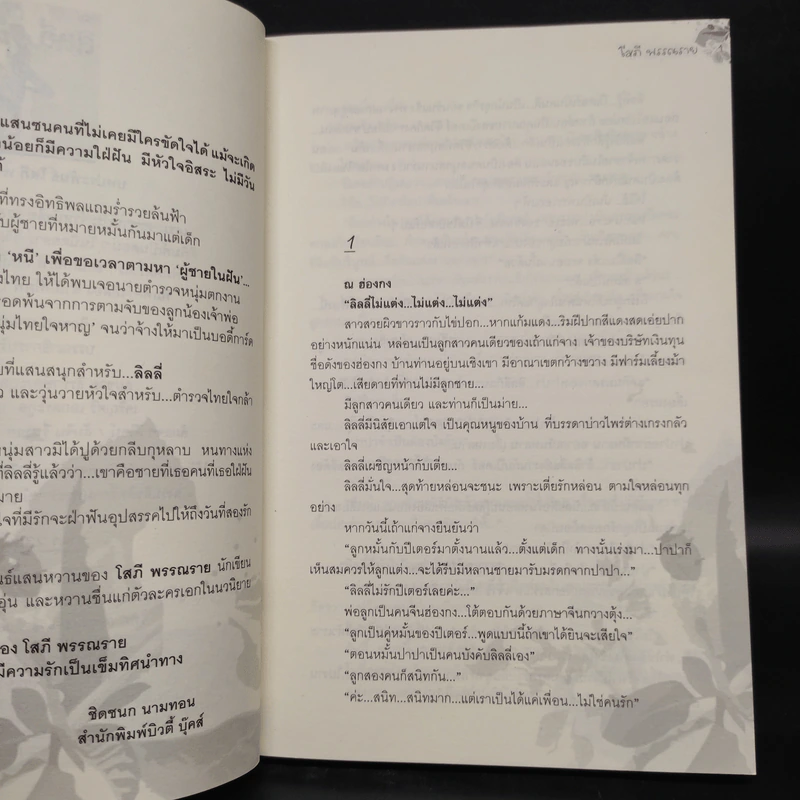 แสนซนคนที่ไม่เคยมีใครขัดใจได้ แม้จะเกิด
น้อยก็มีความใฝ่ฝัน มีหัวใจอิสระ ไม่มีวัน
ที่ทรงอิทธิพลแถมร่ำรวยล้นฟ้า
ับผู้ชายที่หมายหมั้นกันมาแต่เด็ก
'หนี' เพื่อขอเวลาตามหา 'ผู้ชายในฝัน'...
งไทย ให้ได้พบเจอนายตำรวจหนุ่มตกงาน
รอดพ้นจากการตามจับของลูกน้องเจ้าพ่อ
นุ่มไทยใจหาญ' จนว่าจ้างให้มาเป็นบอดี้การ์ด
ยที่แสนสนุกสำหรับ...ลิลลี่
ว และวุ่นวายหัวใจสำหรับ...ตำรวจไทยใจกล้า
หนุ่มสาวมิได้ปูด้วยกลีบกุหลาบ หนทางแห่ง
ที่ลิลลี่รู้แล้วว่า...เขาคือชายที่เธอคนที่เธอใฝ่ฝัน
มาย
ใจที่มีรักจะฝ่าฟันอุปสรรคไปให้ถึงวันที่สองรัก
นธ์แสนหวานของ โสภี พรรณราย นักเขียน
อุ่น และหวานชื่นแก่ตัวละครเอกในนวนิยาย
อง โสภี พรรณราย
มีความรักเป็นเข็มทิศนำทาง
ชิดชนก นามทอน
สำนักพิมพ์บิวตี้ บุ๊คส์
โสภี พรรณราย
1
ณ ฮ่องกง
"ลิลลี่ไม่แต่ง...ไม่แต่ง...ไม่แต่ง"
สาวสวยผิวขาวราวกับไข่ปอก...หากแก้มแดง...ริมฝีปากสีแดงสดเอ่ยปาก
อย่างหนักแน่น หล่อนเป็นลูกสาวคนเดียวของเถ้าแก่จาง เจ้าของบริษัทเงินทุน
ชื่อดังของฮ่องกง บ้านท่านอยู่บนเชิงเขา มีอาณาเขตกว้างขวาง มีฟาร์มเลี้ยงม้า
ใหญ่โต...เสียดายที่ท่านไม่มีลูกชาย...
มีลูกสาวคนเดียว และท่านก็เป็นม่าย...
ลิลลี่มีนิสัยเอาแต่ใจ เป็นคุณหนูของบ้าน ที่บรรดาบ่าวไพร่ต่างเกรงกลัว
และเอาใจ
ลิลลี่เผชิญหน้ากับเตี่ย...
ลิลลี่มั่นใจ...สุดท้ายหล่อนจะชนะ เพราะเตี่ยรักหล่อน ตามใจหล่อนทุก
อย่าง
หากวันนี้เถ้าแก่จางยืนยันว่า
"ลูกหมั้นกับปีเตอร์มาตั้งนานแล้ว...ตั้งแต่เด็ก ทางนั้นเร่งมา...ปาปาก็
เห็นสมควรให้ลูกแต่ง...จะได้รีบมีหลานชายมารับมรดกจากปาปา..."
"ลิลลี่ไม่รักปีเตอร์เลยค่ะ..."
พ่อลูกเป็นคนจีนฮ่องกง...โต้ตอบกันด้วยภาษาจีนกวางตุ้ง...
"ลูกเป็นคู่หมั้นของปีเตอร์...พูดแบบนี้ถ้าเขาได้ยินจะเสียใจ"
"ตอนหมั้นปาปาเป็นคนบังคับลิลลี่เอง"
"ลูกสองคนก็สนิทกัน..."
"ค่ะ...สนิท...สนิทมาก...แต่เราเป็นได้แค่เพื่อน...ไม่ใช่คนรัก"